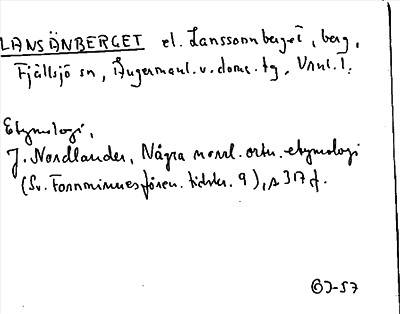 LANSÅNBERGET el. Lanssonnberget, berg,
Fjällsjö sn, Ångermanl. v. doms. tg, Vnl. l.
Etymologi,
J. Nordlander, Några norrl. ortn. etymologi
(Sv. Fornminnesfören. tidskr. 9), s 317 f.